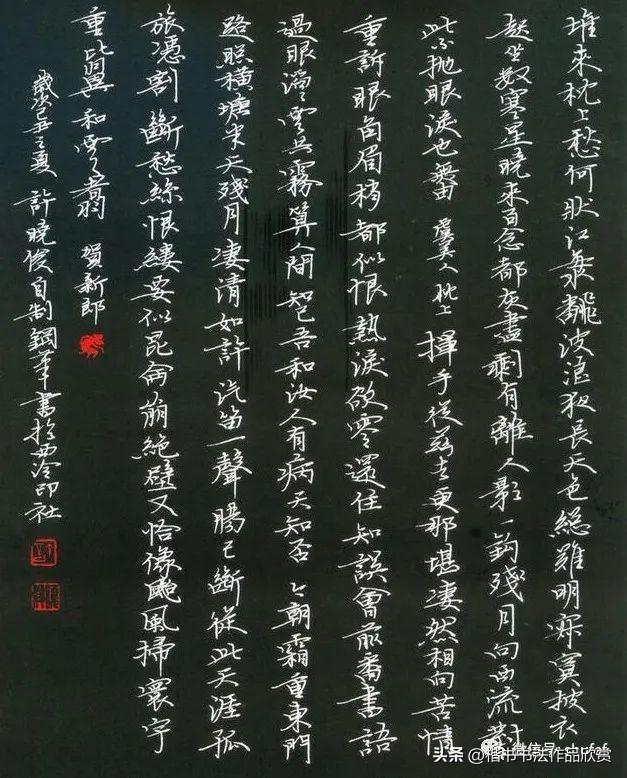 堆來枕上愁何狀江海翻波浪夜長天色總難明寂寞披衣
起坐數寒星曉來百念都灰盡剩有離人影一鈎殘月向西流對
此不拋眼淚也無由 虞美人 枕上 揮手從茲去更那堪凄然相向苦情
重訴眼角眉梢都似恨熱淚欲零還住知誤會前番書語
過眼滔滔雲共霧算人間知己吾和汝人有病天知否今朝霜重東門
路照橫塘半天殘月凄清如許汽笛一聲腸已斷從此天涯孤
旅憑割斷愁絲恨縷要似昆侖崩絕壁又恰像颱風掃寰宇
重比翼和雲翥 賀新郎
歲次己丑之夏 許曉俊自制鋼筆書於西泠印社
头条 @楷书书法作品欣赏
微信号: